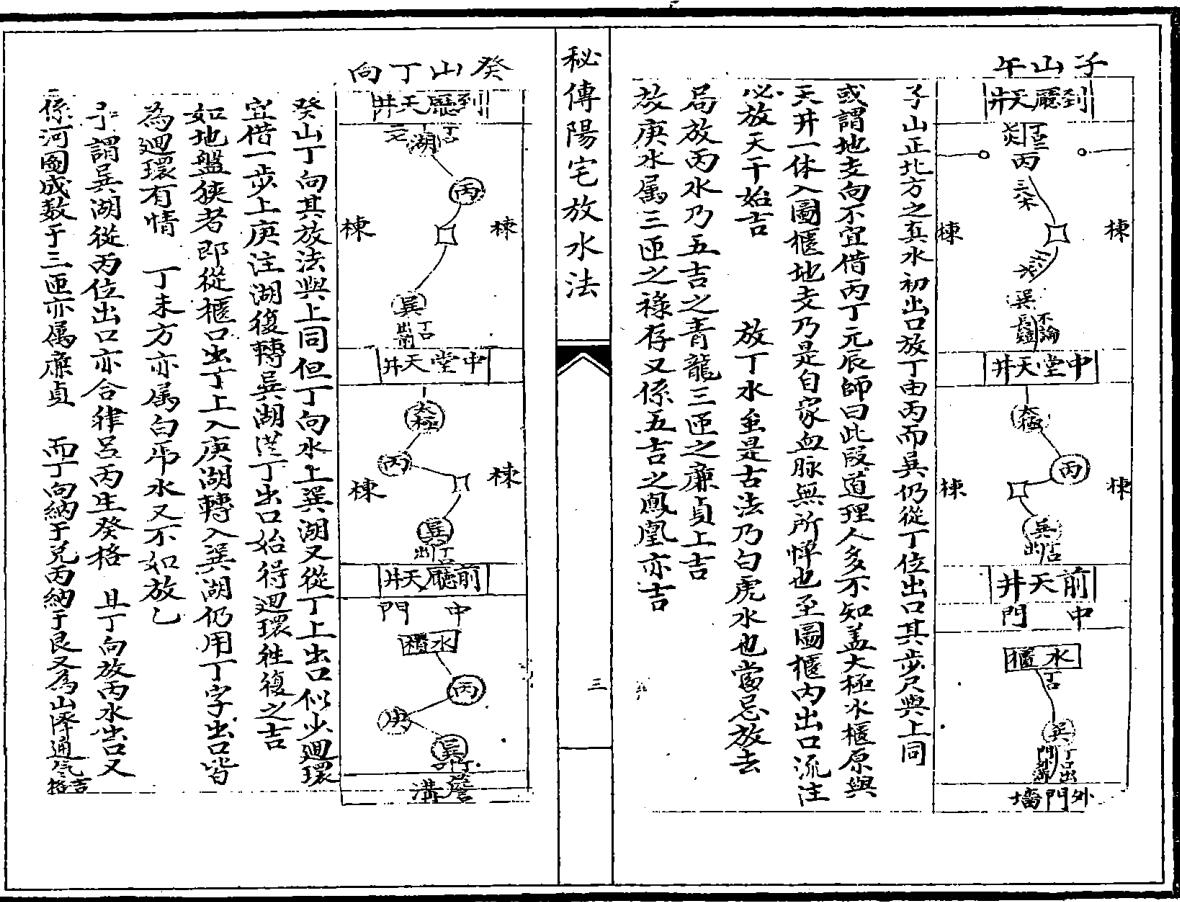 子山午
到廳天井
丙
棟
棟
巽
不論
長短
中堂天井
太極
棟
棟
丙
巽
丁口
出
前天井
中門
水櫃
丁口
巽
丁口出
外門墻
子山正北方之真水初出口放丁由丙而巽仍從丁位出口其步尺與上同
或謂地支向不宜借丙丁元辰師曰此段道理人多不知蓋太極水櫃原與
天井一体入圖櫃地支乃是自家血脉無所憚也至圖櫃內出口流注
必放天干始吉　放丁水並是古法乃白虎水也當忌放去
局放丙水乃五吉之青龍三匝之廉貞上吉
故庚水属三匝之祿存又係五吉之鳳凰亦吉
秘傳陽宅放水法
三
癸山丁向
到廳天井
丁口
湖
丙
棟
棟
巽
丁口
出前
中堂天井
太極
丙
棟
棟
巽
丁口
出
前廳天井
中門
水櫃
丙
庚
巽
簷溝
癸山丁向其放法與上同但丁向水上巽湖又從丁上出口似少廻環
宜借一步上庚注湖復轉巽湖從丁出口始得廻環往復之吉
如地盤狹者即從櫃口出丁上入庚湖轉入巽湖仍用丁字出口皆
為廻環有情　丁未方亦属白虎水又不如放乙
予謂巽湖從丙位出口亦合律呂丙生癸格　且丁向放丙水出口又
係河圖成数于三匝亦属廉貞　而丁向納于兌丙納于艮又為山澤通氣吉格